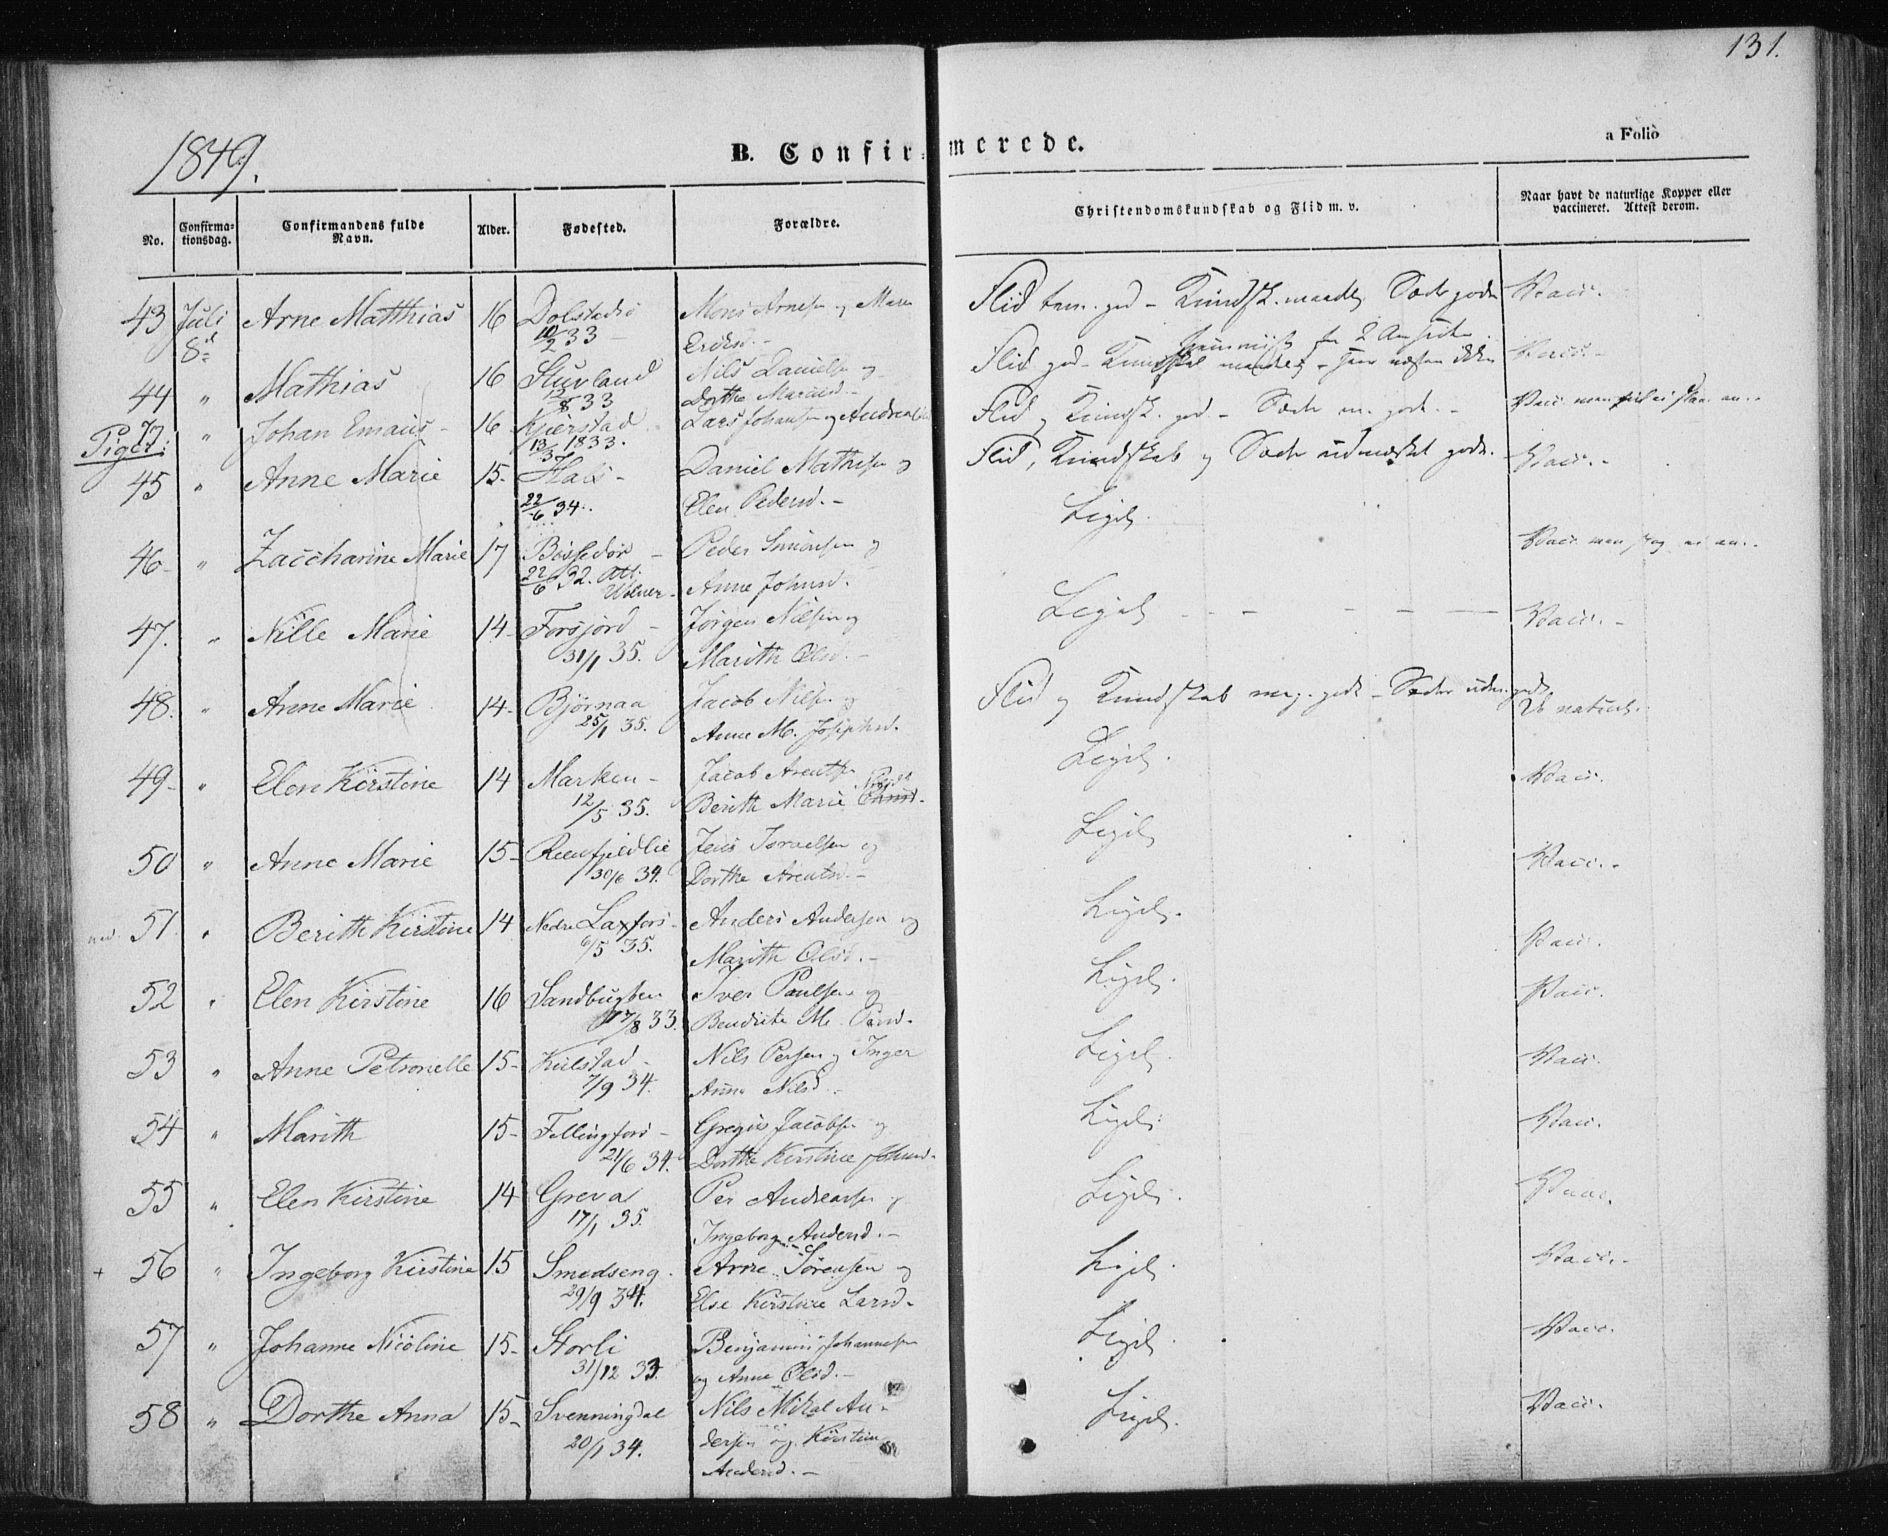 131.
1849.
B. Confirmerede.
a Folio
No.
Confirma-
tionsdag.
Confirmandens fulde
Navn.
Alder.
Fødested.
Forældre.
Christendomskundskab og Flid m. v.
Naar havt de naturlige Kopper eller
vaccineret. Attest derom.
43 Juli Arne Matthias 16 Dolstadø Mons Arnesen og Maren Flid tem. god - Kundsk. maadel. Sæder gode Vacc.
8d 10/2 33
44 " Mathias 16 Stuvland Nils Danielsen og Flid god - Vacc.
12/8 33 Dorthe
" Johan Emaus 16 Kjerstad Lars Johansen og Flid og Kundsk. god - Sæder m. gode. Vacc.
Piger: 13/3 1833.
45 " Anne Marie 15 Hals Daniel Mathisen og Flid, Kundskab og Sæder udmærket gode. Vacc.
22/6 34. Elen Pedersd. Ligel.
46 " Zaccharine Marie 17 Peder Simonsen og Vacc. men
22/6 32. Att. Anne Johnsd. Ligel.
47. " Nille Marie 14 Forsjord Jørgen Nilsen og Vacc.
31/1 35. Marith Olsd.
48. " Anne Marie 14 Bjørnaa Jacob Nilsen og Flid og Kundskab meg. gode - Sæder udm. gode. naturl.
25/1 35. Anne M. Josephsd. Ligel.
49 " Elen Kirstine 14 Marken Jacob Arentsen Vacc.
12/5 35. Berith Marie Ligel.
50 " Anne Marie 15 Reenfjeldlie Jens Torvelsen og Vacc.
30/6 34. Dorthe Arentsd. Ligel.
51 " Berith Kirstine 14 Nedre Laxfors Anders Andersen og Vacc.
6/5 35. Marith Olsd. Ligel.
52 " Elen Kirstine 16 Sandbugten Iver Paulsen og Vacc.
17/8 33. Bendicte M. Ligel.
53 " Anne Petronelle 15 Kulstad Nils Persen og Inger Vacc.
7/9 34. Anna Nilsd. Ligel.
54 " Marith 15 Fellingfors Gregus Jacobsen og Vacc.
21/6 34. Dorthe Kirstine Johnsd. Ligel.
55 " Elen Kirstine 14 Greva Per Andreassen og Vacc.
17/1 35. Ingeborg Andersd. Ligel.
+ 56 " Ingeborg Kirstine 15 Smedseng Arne Sørensen og Vacc.
29/9 34. Else Kirstine Larsd. Ligel.
57 " Johanne Nicoline 15 Storli Benjamin Johannesen Vacc.
31/12 33. og Anne Olsd. Ligel.
58 " Dorthe Anna 15 Svenningdal Nils Mikal An- Vacc.
20/1 34. dersen og Kirstine
Andersd.